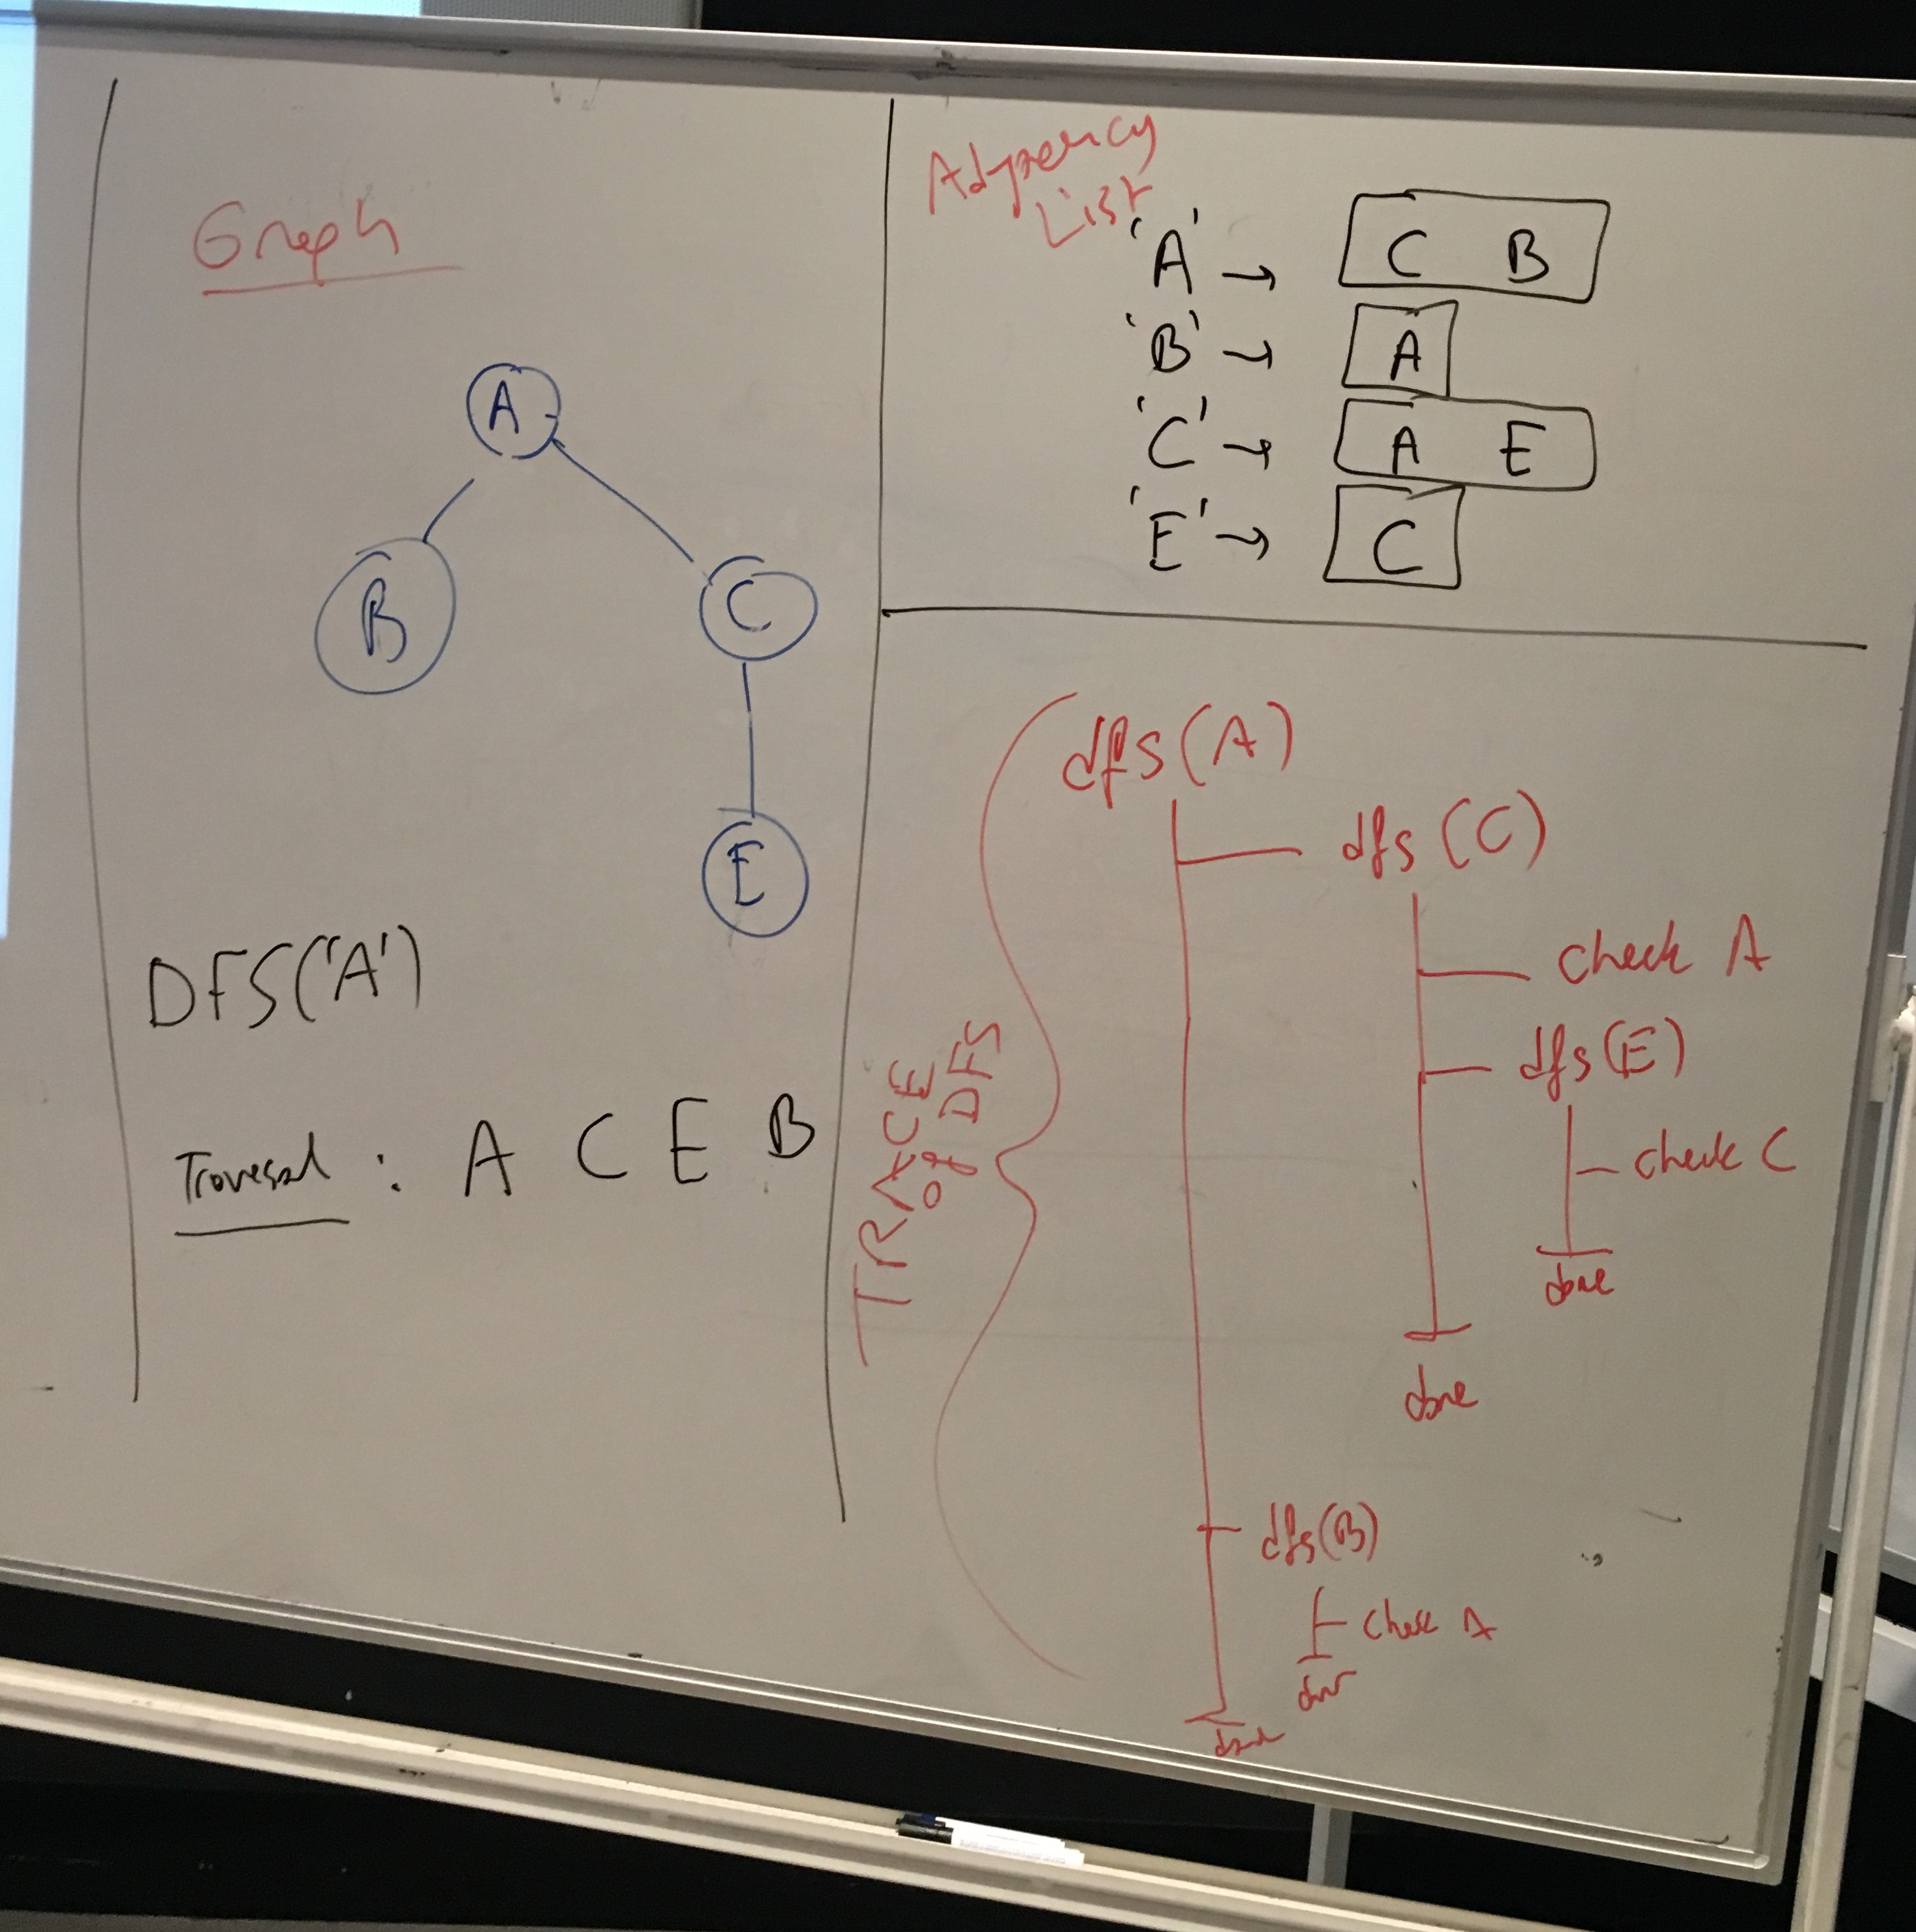 Graph
A
B
C
E
DFS('A')
Traversal : A C E B
Adjacency
List
'A' → C B
'B' → A
'C' → A E
'E' → C
TRACE
of DFS
dfs(A)
dfs(C)
check A
dfs(E)
check C
done
done
dfs(B)
check A
done
done